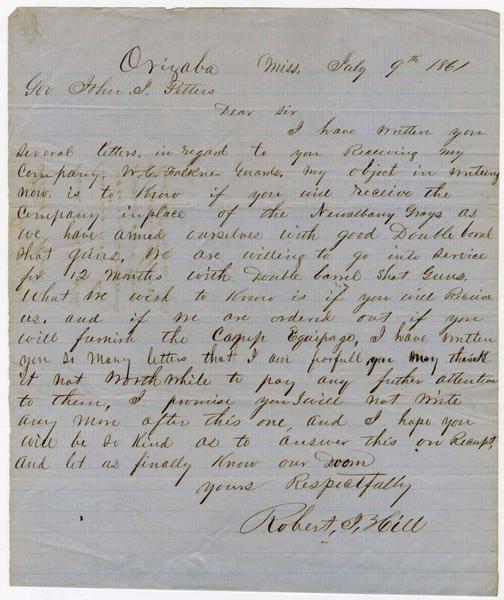 Orizaba Miss. July 9th 1861
Gov John J. Pettus
Dear Sir
I have written you
several letters, in regard to you Receiving my
Company, W. C. Falkner Guards. my object in writing
now. is to Know if you will receive the
Company inplace of the Newalbany Grays as
we have armed ourselves with good Double barel
Shot guns. We are willing to go into Service
for 12 Months with Double barrel Shot Guns.
What we wish to Know is if you will Receive
us. and if we are ordered out if you
will furnish the Camp Equipage, I have written
you so many letters that I am you may think
it not Worth while to pay any futher attention
to them, I promise you I will not write
any more after this one, and I hope you
will be so Kind as to answer this on Recept,
and let us finally Know our Doom
yours Respectfully
Robert. J, Hill